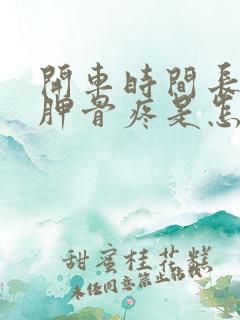 開車時間長
胛骨疼是怎
甜蜜桂花糕
未經同意禁止轉載